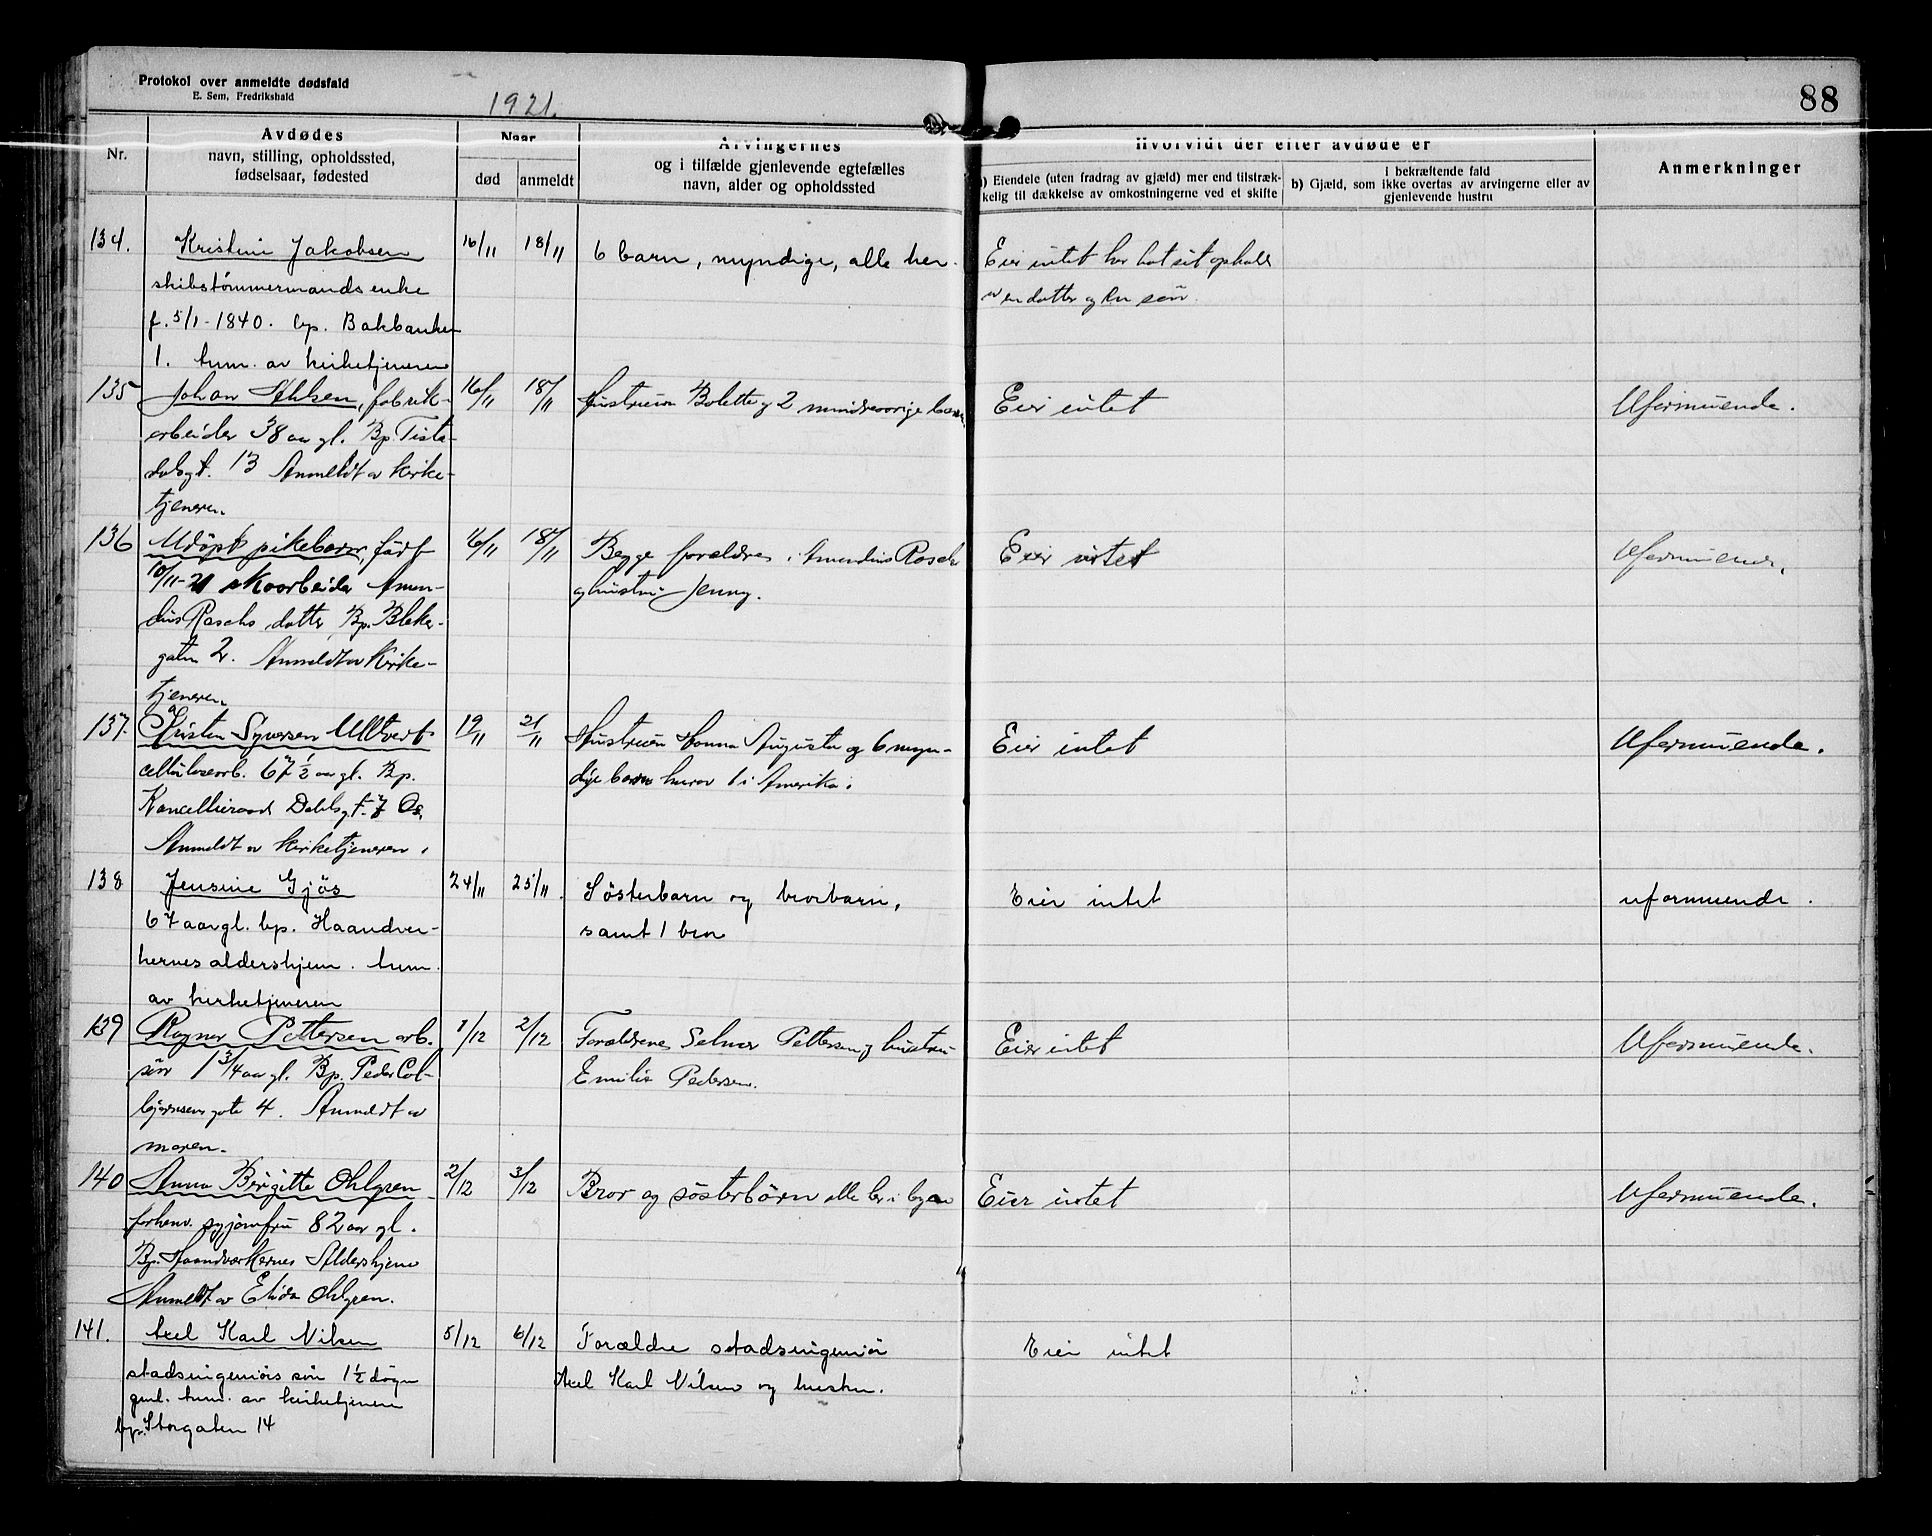 Protokol over anmeldte dødsfald
E. Sem, Fredrikshald
1921.
88
Nr.
Avdødes
navn, stilling, opholdssted,
fødselsaar, fødested
Naar
død
anmeldt
Arvingernes
og i tilfælde gjenlevende egtefælles
navn, alder og opholdssted
Hvorvidt der efter avdøde er
a) Eiendele (uten fradrag av gjæld) mer end tilstræk-
kelig til dækkelse av omkostningerne ved et skifte
I bekræftende fald
b) Gjæld, som ikke overtas av arvingerne eller av
gjenlevende hustru
Anmerkninger
134.
Kristine Jakobsen
skibstømmermands enke
f. 5/1-1840. bp. Bakbanken
1. anm. av kirketjeneren
16/11
18/11
6 barn, myndige, alle her.
Eier intet har hat sit ophold
av en datter og en søn.
135
Johan Ahlsen, fabrik-
arbeider 38 aar gl. Bp. Tista-
dalsgt. 13 Anmeldt av kirke-
tjeneren.
16/11
18/11
Hustruen Bolette og 2 mindreaarige barn
Eier intet
Uformuende.
136
Udøpt pikebarn, født
10/11-21 skoarbeider Amon-
dius Raschs datter, Bp. Bleker-
gaten 2. Anmeldt av Kirke-
tjeneren.
16/11
18/11
Begge forældre: Amondius Rasch
og hustru Jenny.
Eier intet
Uformuende.
137.
Kristen Syversen Ulltveit
cellulosearb. 67 1/2 aar gl. Bp.
Kancelliraad Dahlsgt. 7 Os.
Anmeldt av kirketjeneren.
19/11
21/11
Hustruen Hanna Augusta og 6 myn-
dige barn hvorav 1 i Amerika.
Eier intet
Uformuende.
138
Jensine Gjøs
67 aar gl. bp. Haandver-
kernes aldershjem. anm.
av kirketjeneren
24/11
25/11.
Søsterbarn og brorbarn,
samt 1 bror
Eier intet
uformuende.
139
Ragnar Pettersen arb.
søn 1 3/4 aar gl. Bp. Peder Col-
bjørnsens gate 4. Anmeldt av
moren.
1/12
2/12
Forældrene Selmer Pettersen og hustru
Emilie Pedersen.
Eier intet
Uformuende.
140
Anna Birgitte Ohlgren
forhenv. syjomfru 82 aar gl.
Bp. Haandværkernes Aldershjem
Anmeldt av Elida Ohlgren.
2/12
3/12
Bror og søsterbørn alle her i byen
Eier intet
Uformuende.
141.
Axel Karl Nilsen
stadsingeniørs søn 1 1/2 døgn
gml. anm. av kirketjenere
bp. Storgaten 14
5/12
6/12
Forældre stadsingeniør
Axel Karl Nilsen og hustru.
Eier intet